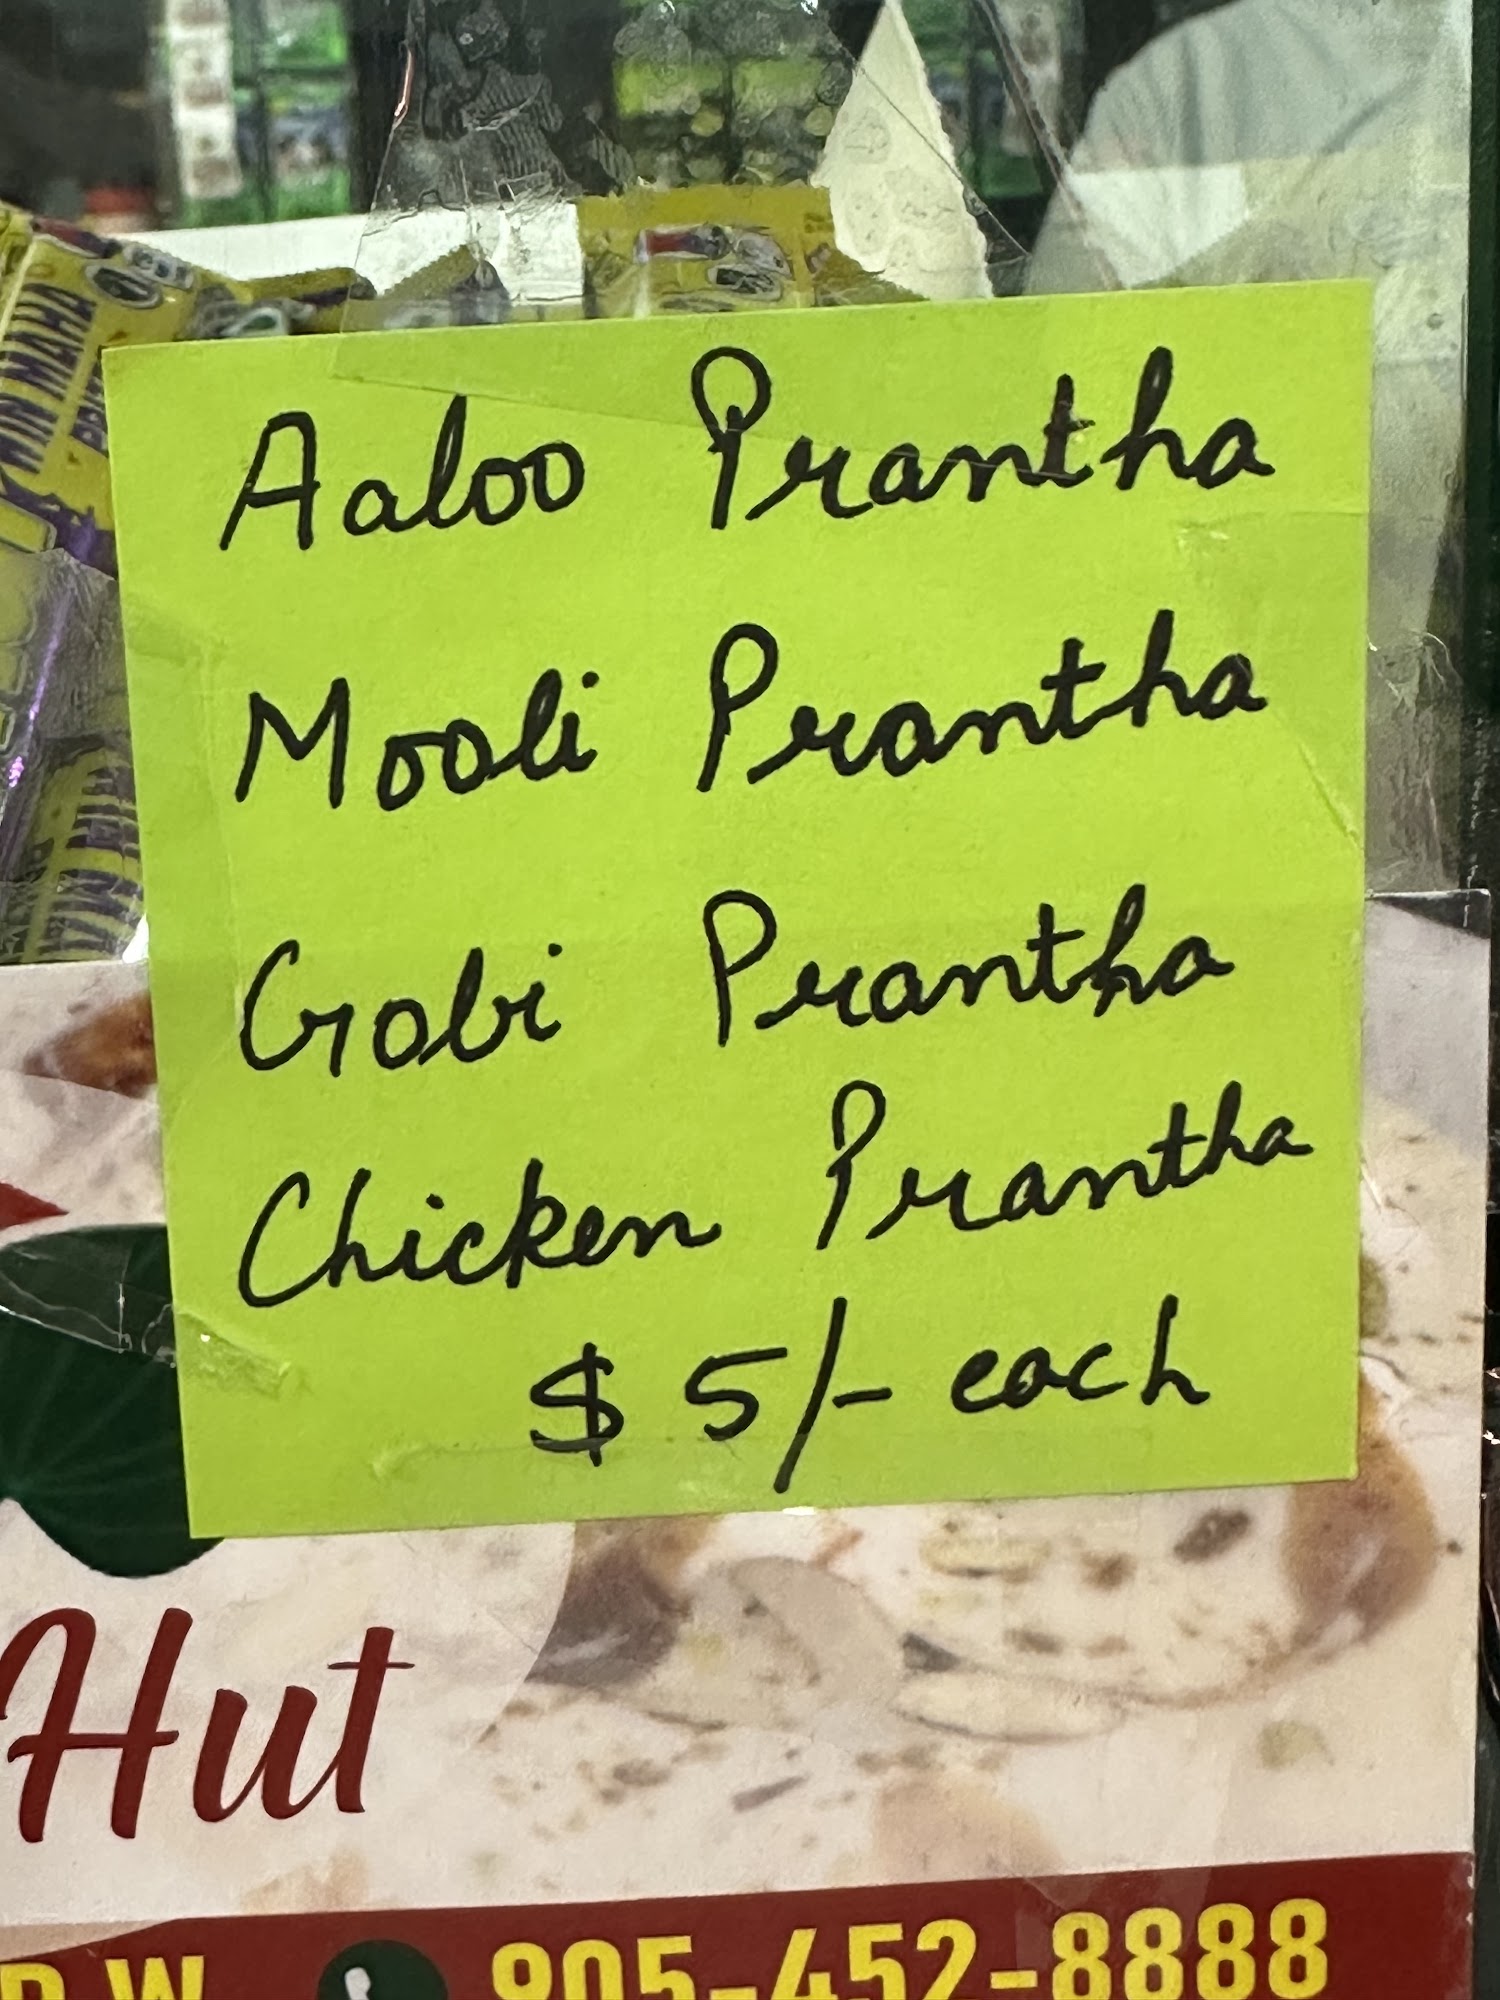 Aaloo Prantha
Mooli Prantha
Gobi Prantha
Chicken Prantha
$ 5/- each
Hut
905-452-8888